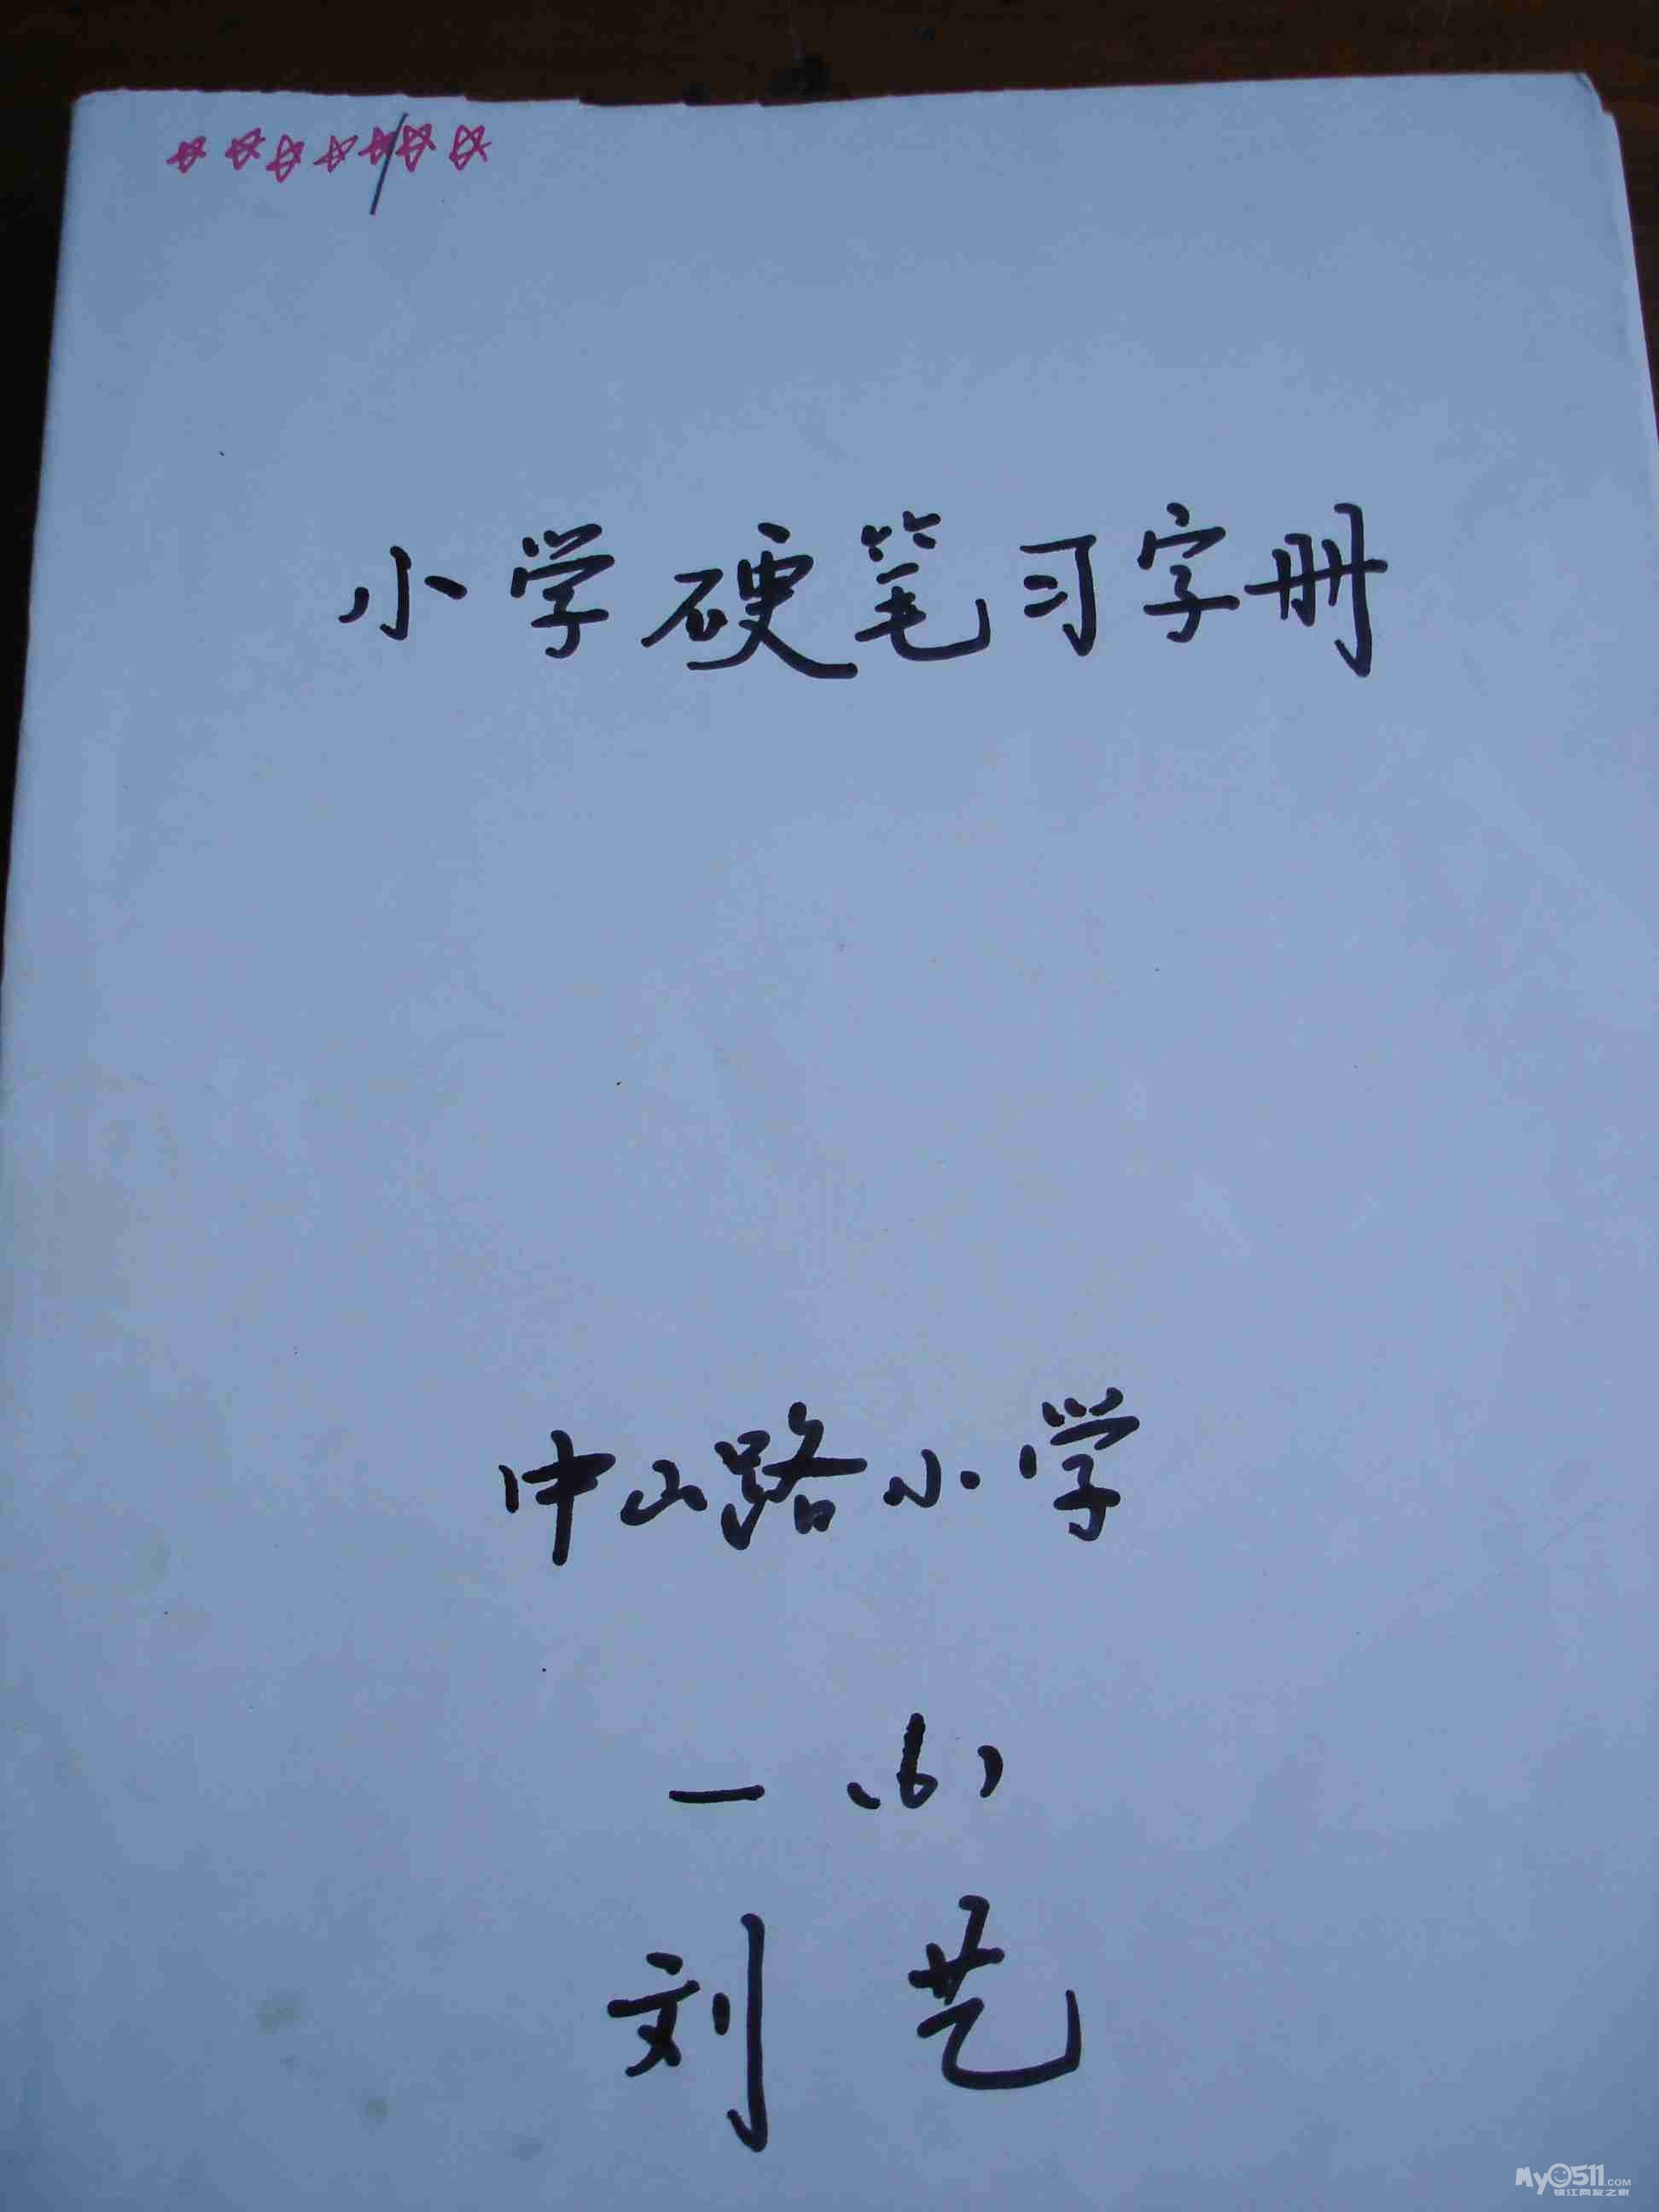 小学硬笔习字册
中山路小学
一（6）
刘艺
My0511.COM
镇江网友之家